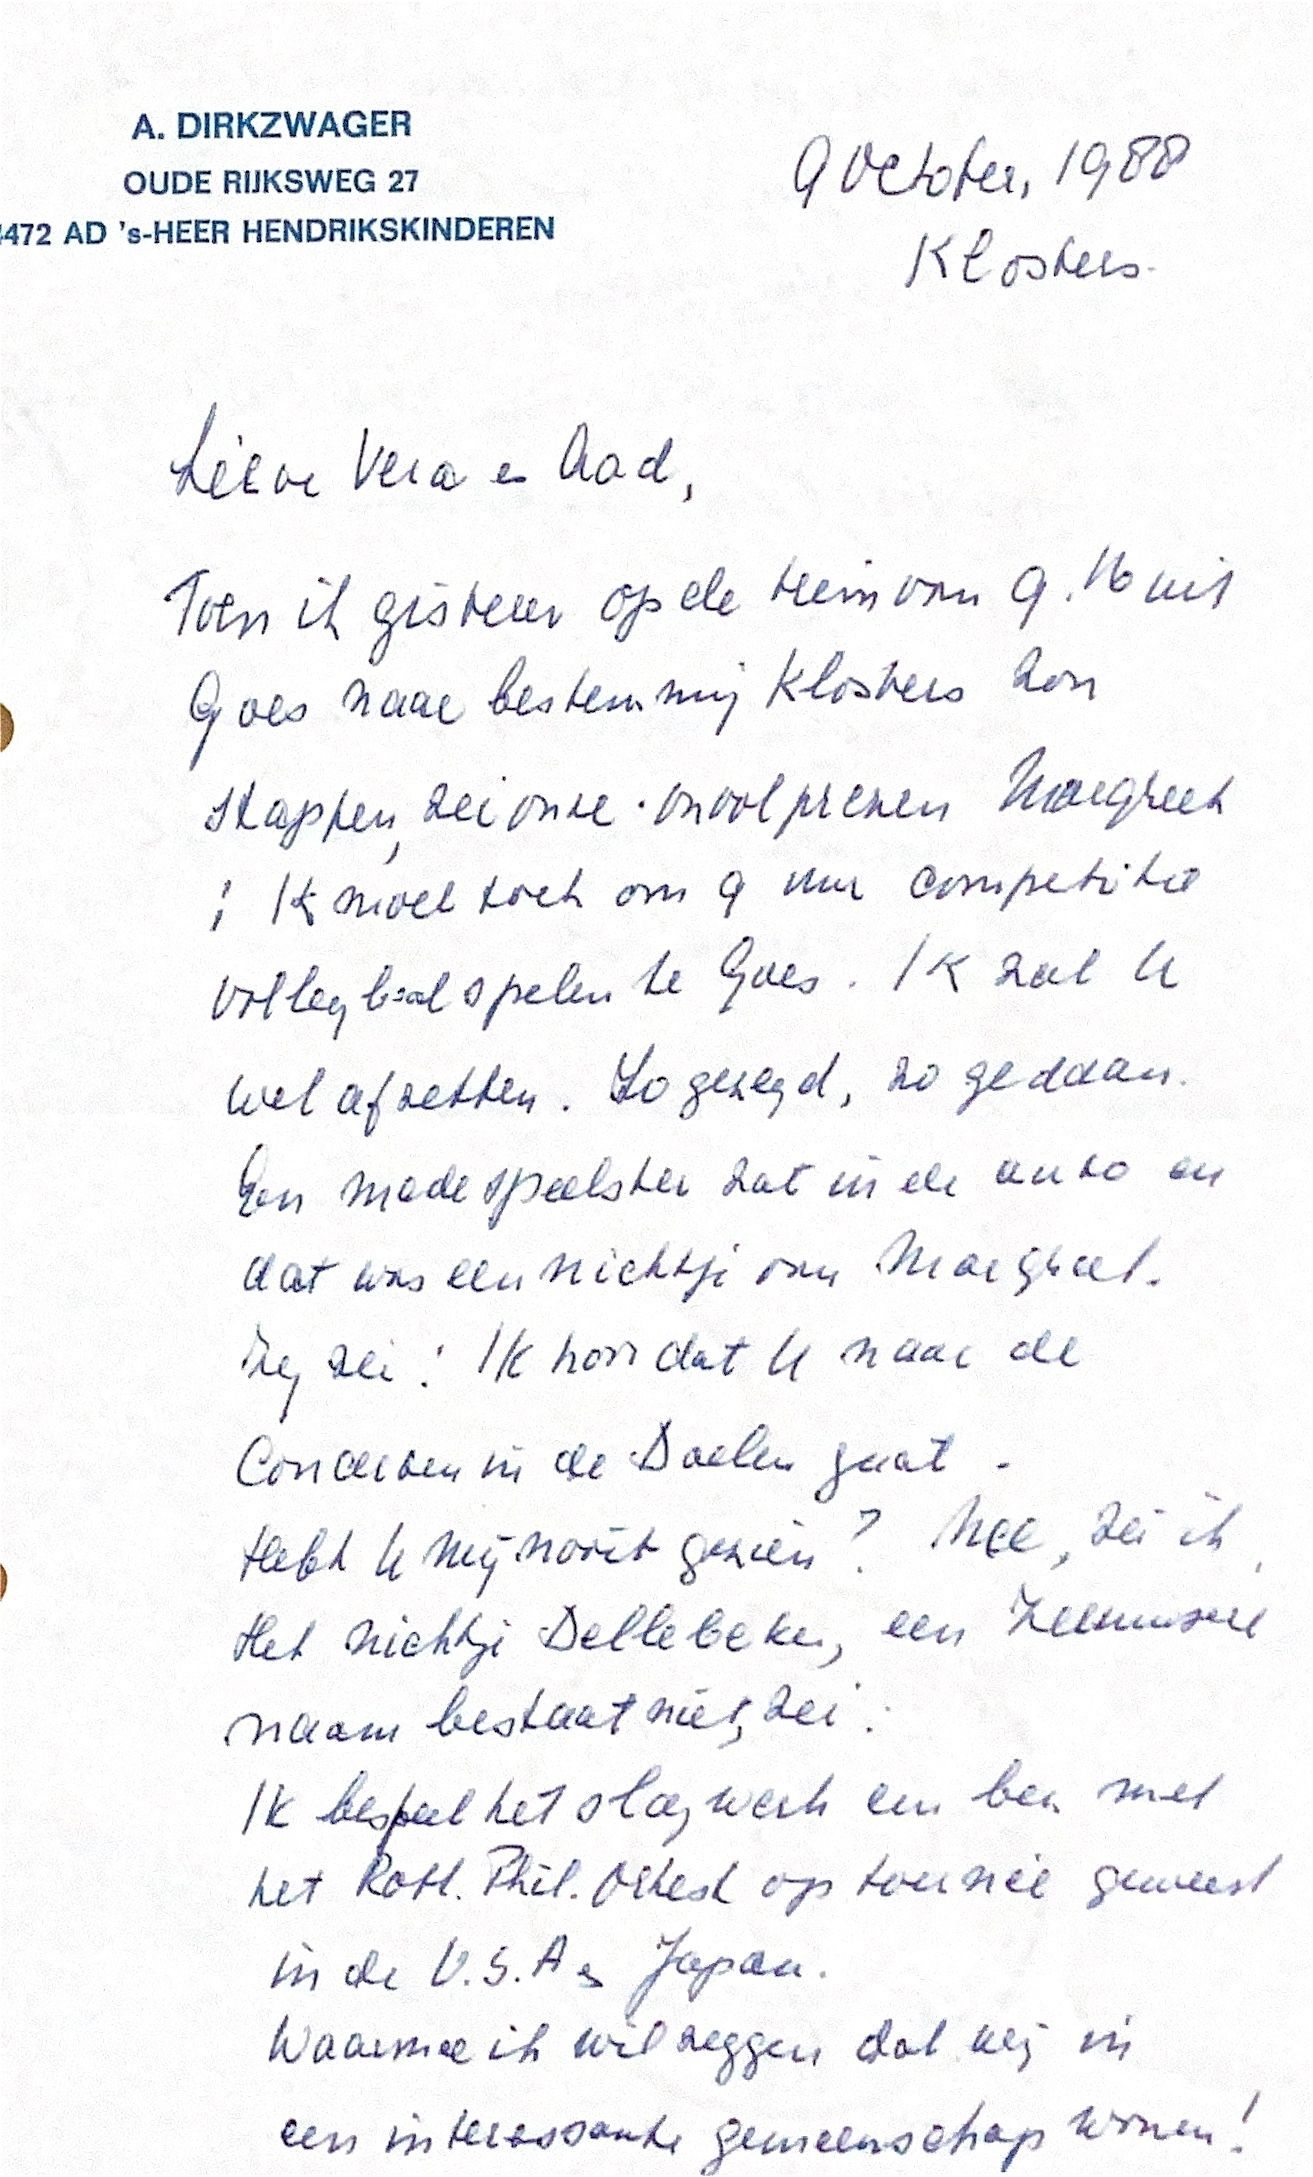 A. DIRKZWAGER
OUDE RIJKSWEG 27
4472 AD 's-HEER HENDRIKSKINDEREN
9 October, 1988
Klosters.
Lieve Vera en Aad,
Toen ik gisteren op de trein van 9.16 uit
Goes naar bestemmig Klosters zou
stappen, zei onze onvolprezen Margreet
: Ik moet toch om 9 uur competitie
volleybal spelen te Goes. Ik zal U
wel afzetten. Zo gezegd, zo gedaan.
Een medespeelster zat in de auto en
dat was een nichtje van Margreet.
Zij zei: Ik hoor dat U naar de
Concerten in de Doelen gaat.
Hebt U mij nooit gezien? Nee, zei ik,
Het nichtje Dellebeke, een Zeeuwsere
naam bestaat niet, zei:
Ik bespeel het slagwerk en ben met
het Rott. Phil. Orkest op tournee geweest
in de U.S.A en Japan.
Waarmee ik wil zeggen dat wij in
een interessante gemeenschap wonen!